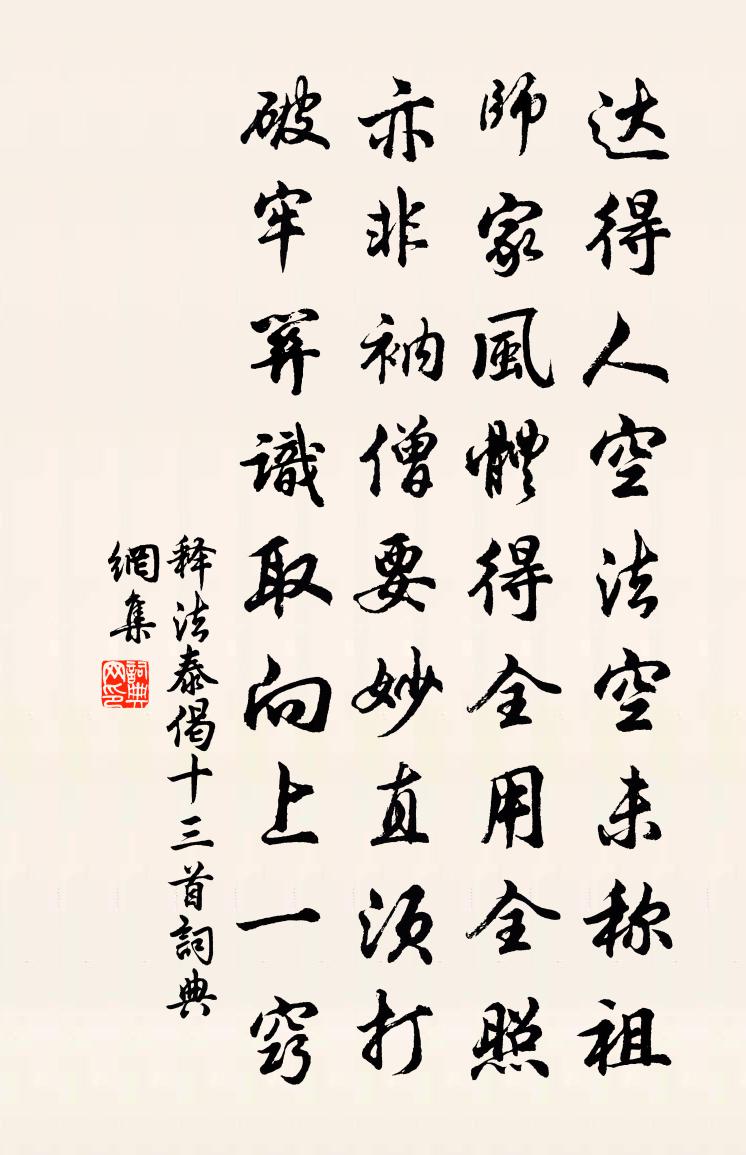 达得人空法空未称祖
師家風體得全用全照
亦非衲僧要妙直须打
破牢關識取向上一窍
释法泰偈十三首詞典
網集
詞典
网印